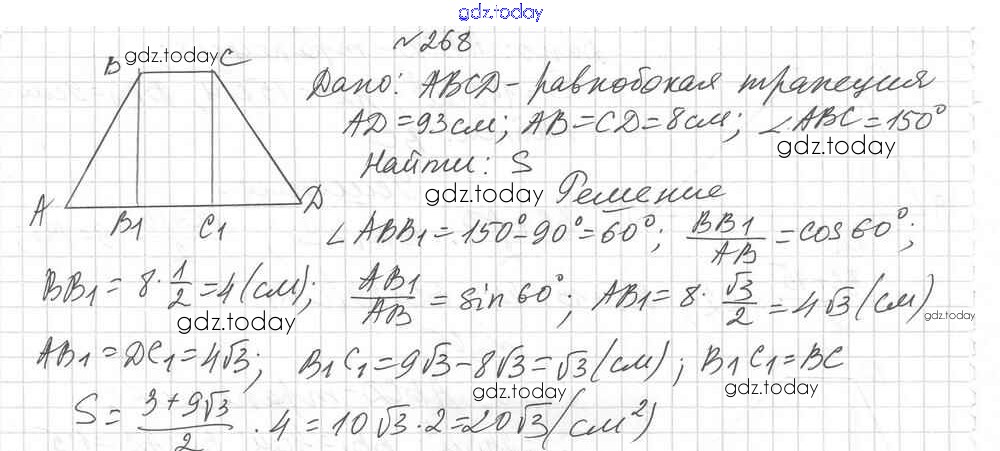 gdz.today
№268
B gdz.today C
Дано: ABCD - равнобокая трапеция
AD = 93 см; AB = CD = 8 см; ∠ABC = 150°
gdz.today
Найти: S
gdz.today
Решение
A B1 C1 D
∠ABB1 = 150° - 90° = 60°; BB1/AB = cos 60°;
BB1 = 8 · 1/2 = 4 (см); AB1/AB = sin 60°; AB1 = 8 · √3/2 = 4√3 (см)
gdz.today gdz.today
AB1 = DC1 = 4√3; B1C1 = 9√3 - 8√3 = √3 (см); B1C1 = BC
gdz.today gdz.today
S = 3 + 9√3/2 · 4 = 10√3 · 2 = 20√3 (см²)